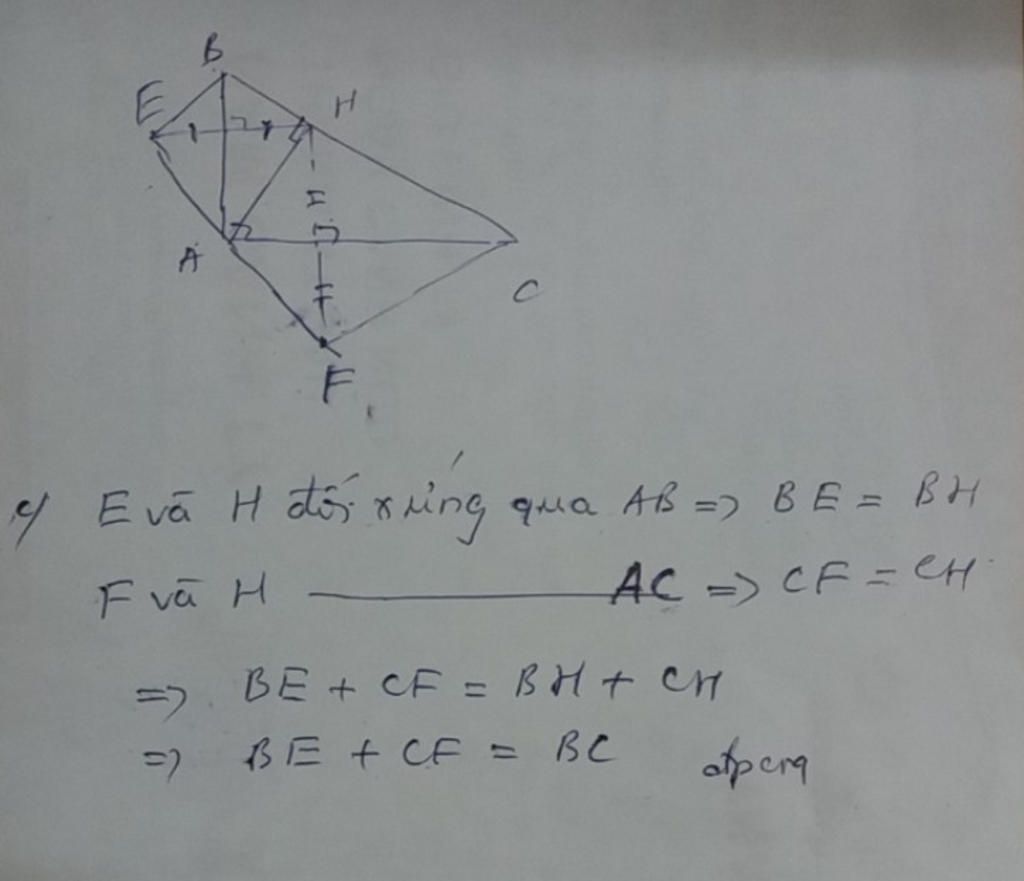 B
E
H
A
C
F
c/ E và H đối xứng qua AB => BE = BH
F và H ——— AC => CF = CH
=> BE + CF = BH + CH
=> BE + CF = BC đpcm